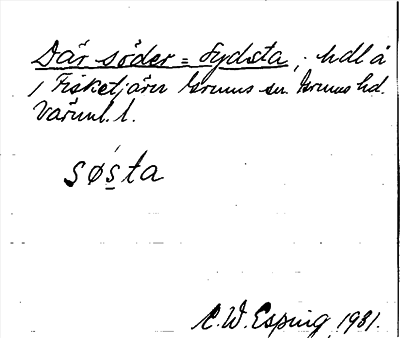 Där söder = Sydsta, hdl å
i Fisketjärn Grums sn. Grums hd.
Värml. l.
søsta
C.W. Esping 1931.